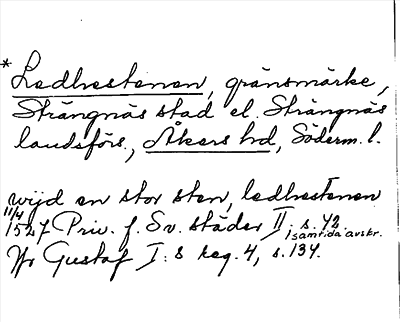 * Ledhestenen, gränsmärke,
Strängnäs stad el. Strängnäs
landsförs., Åkers hd, Söderm. l.
wijd en stor sten, ledhestenen
11/4
1527 Priv. f. Sv. städer II, s. 42
i samtida avskr.
Jfr Gustaf I:s reg. 4, s. 134.